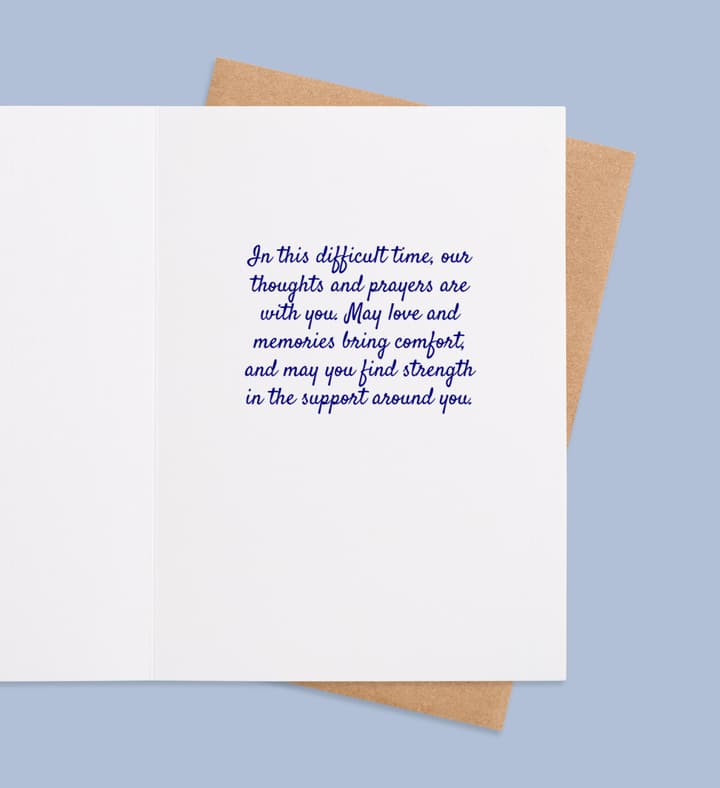 In this difficult time, our
thoughts and prayers are
with you. May love and
memories bring comfort,
and may you find strength
in the support around you.